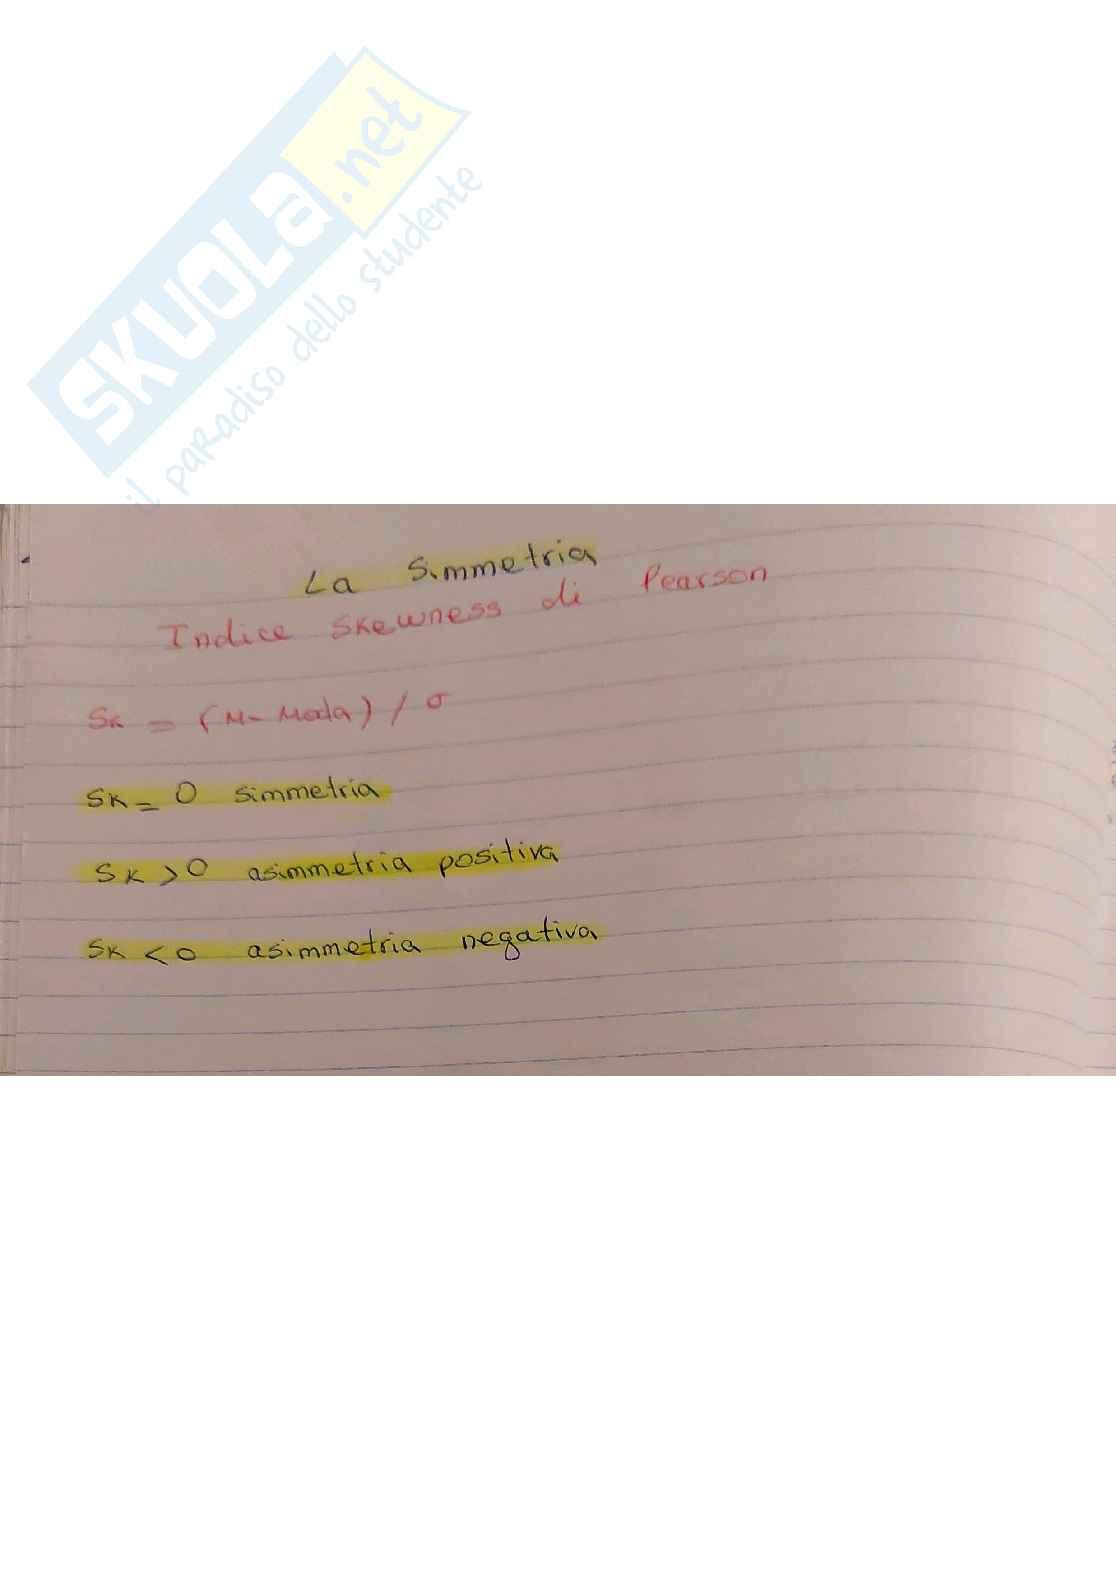 SKUOLA.net
il paradiso dello studente
La Simmetria
Indice Skewness di Pearson
Sk = (M - Moda) / σ
Sk = 0 simmetria
Sk > 0 asimmetria positiva
Sk < 0 asimmetria negativa